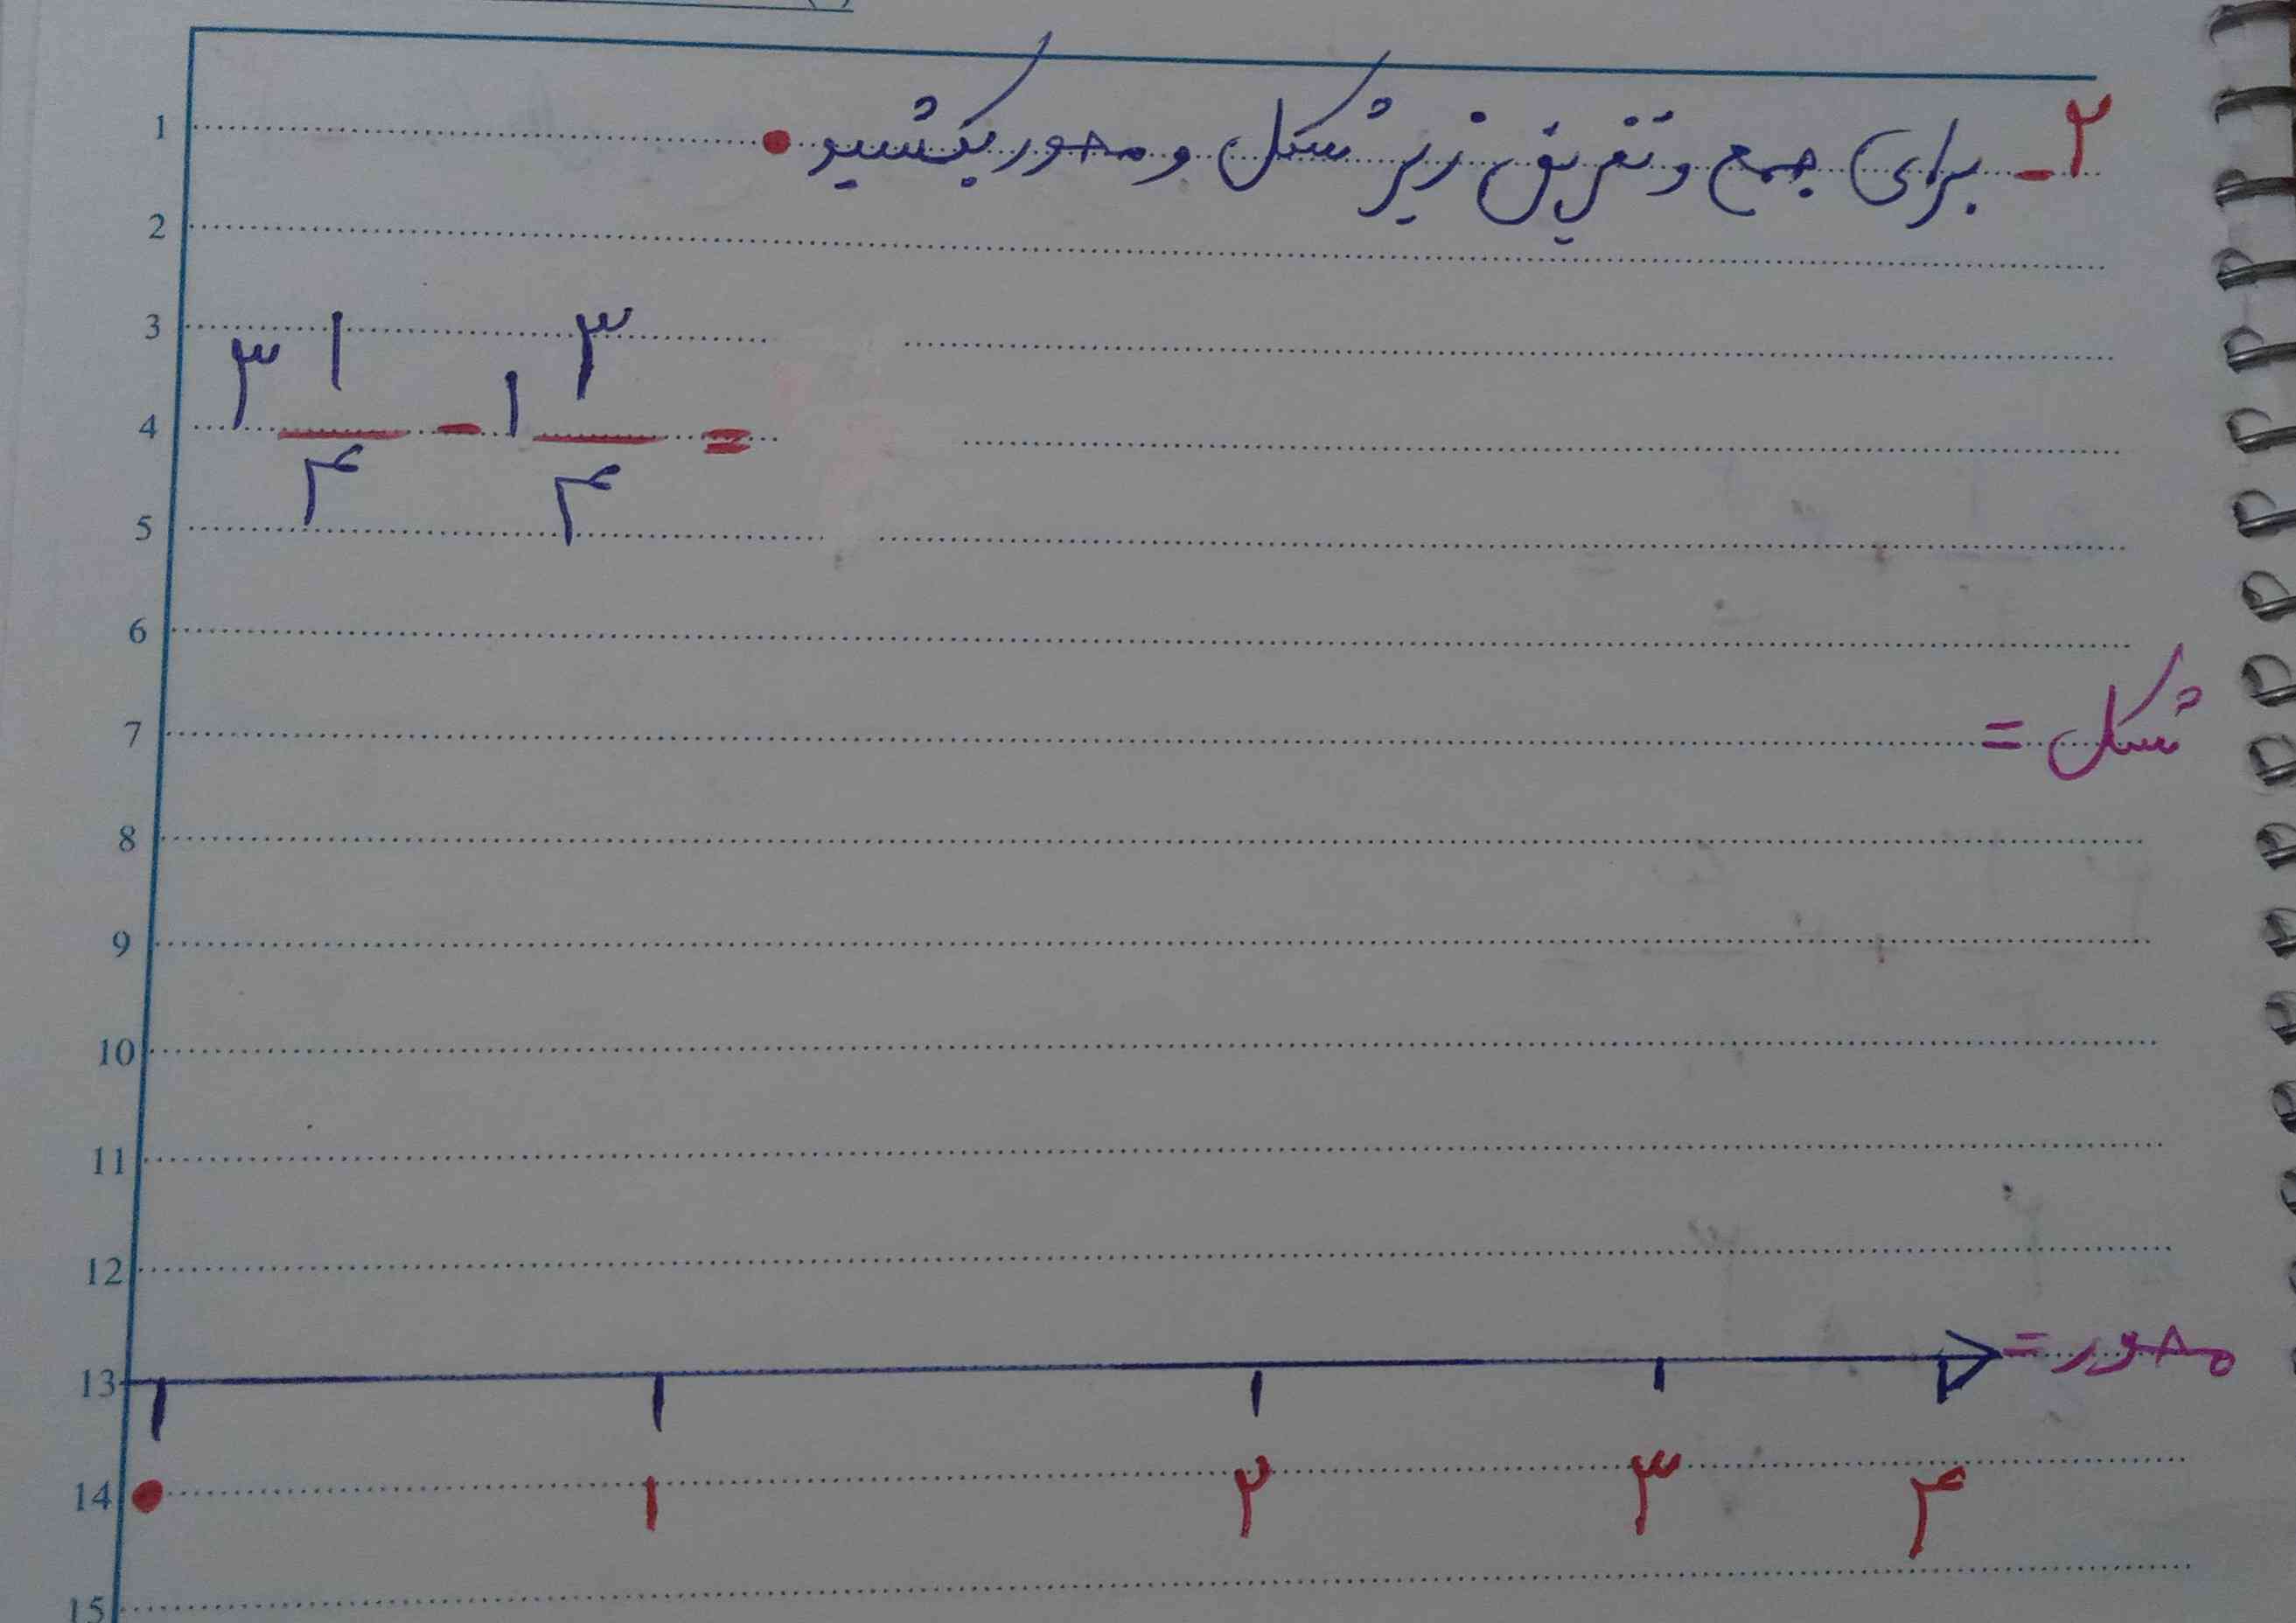 ۲- برای جمع و تفریق زیر شکل و محور بکشید.
1
2
3
4
5
۳ ۱/۴ - ۱ ۳/۴ =
6
شکل =
7
8
9
10
11
12
محور =
13
۰ ۱ ۲ ۳ ۴
14
15